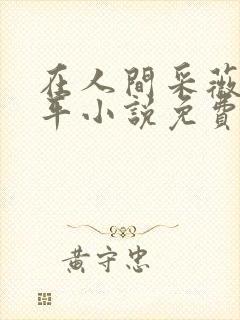 在人間采薇
年小説免費
黃守忠